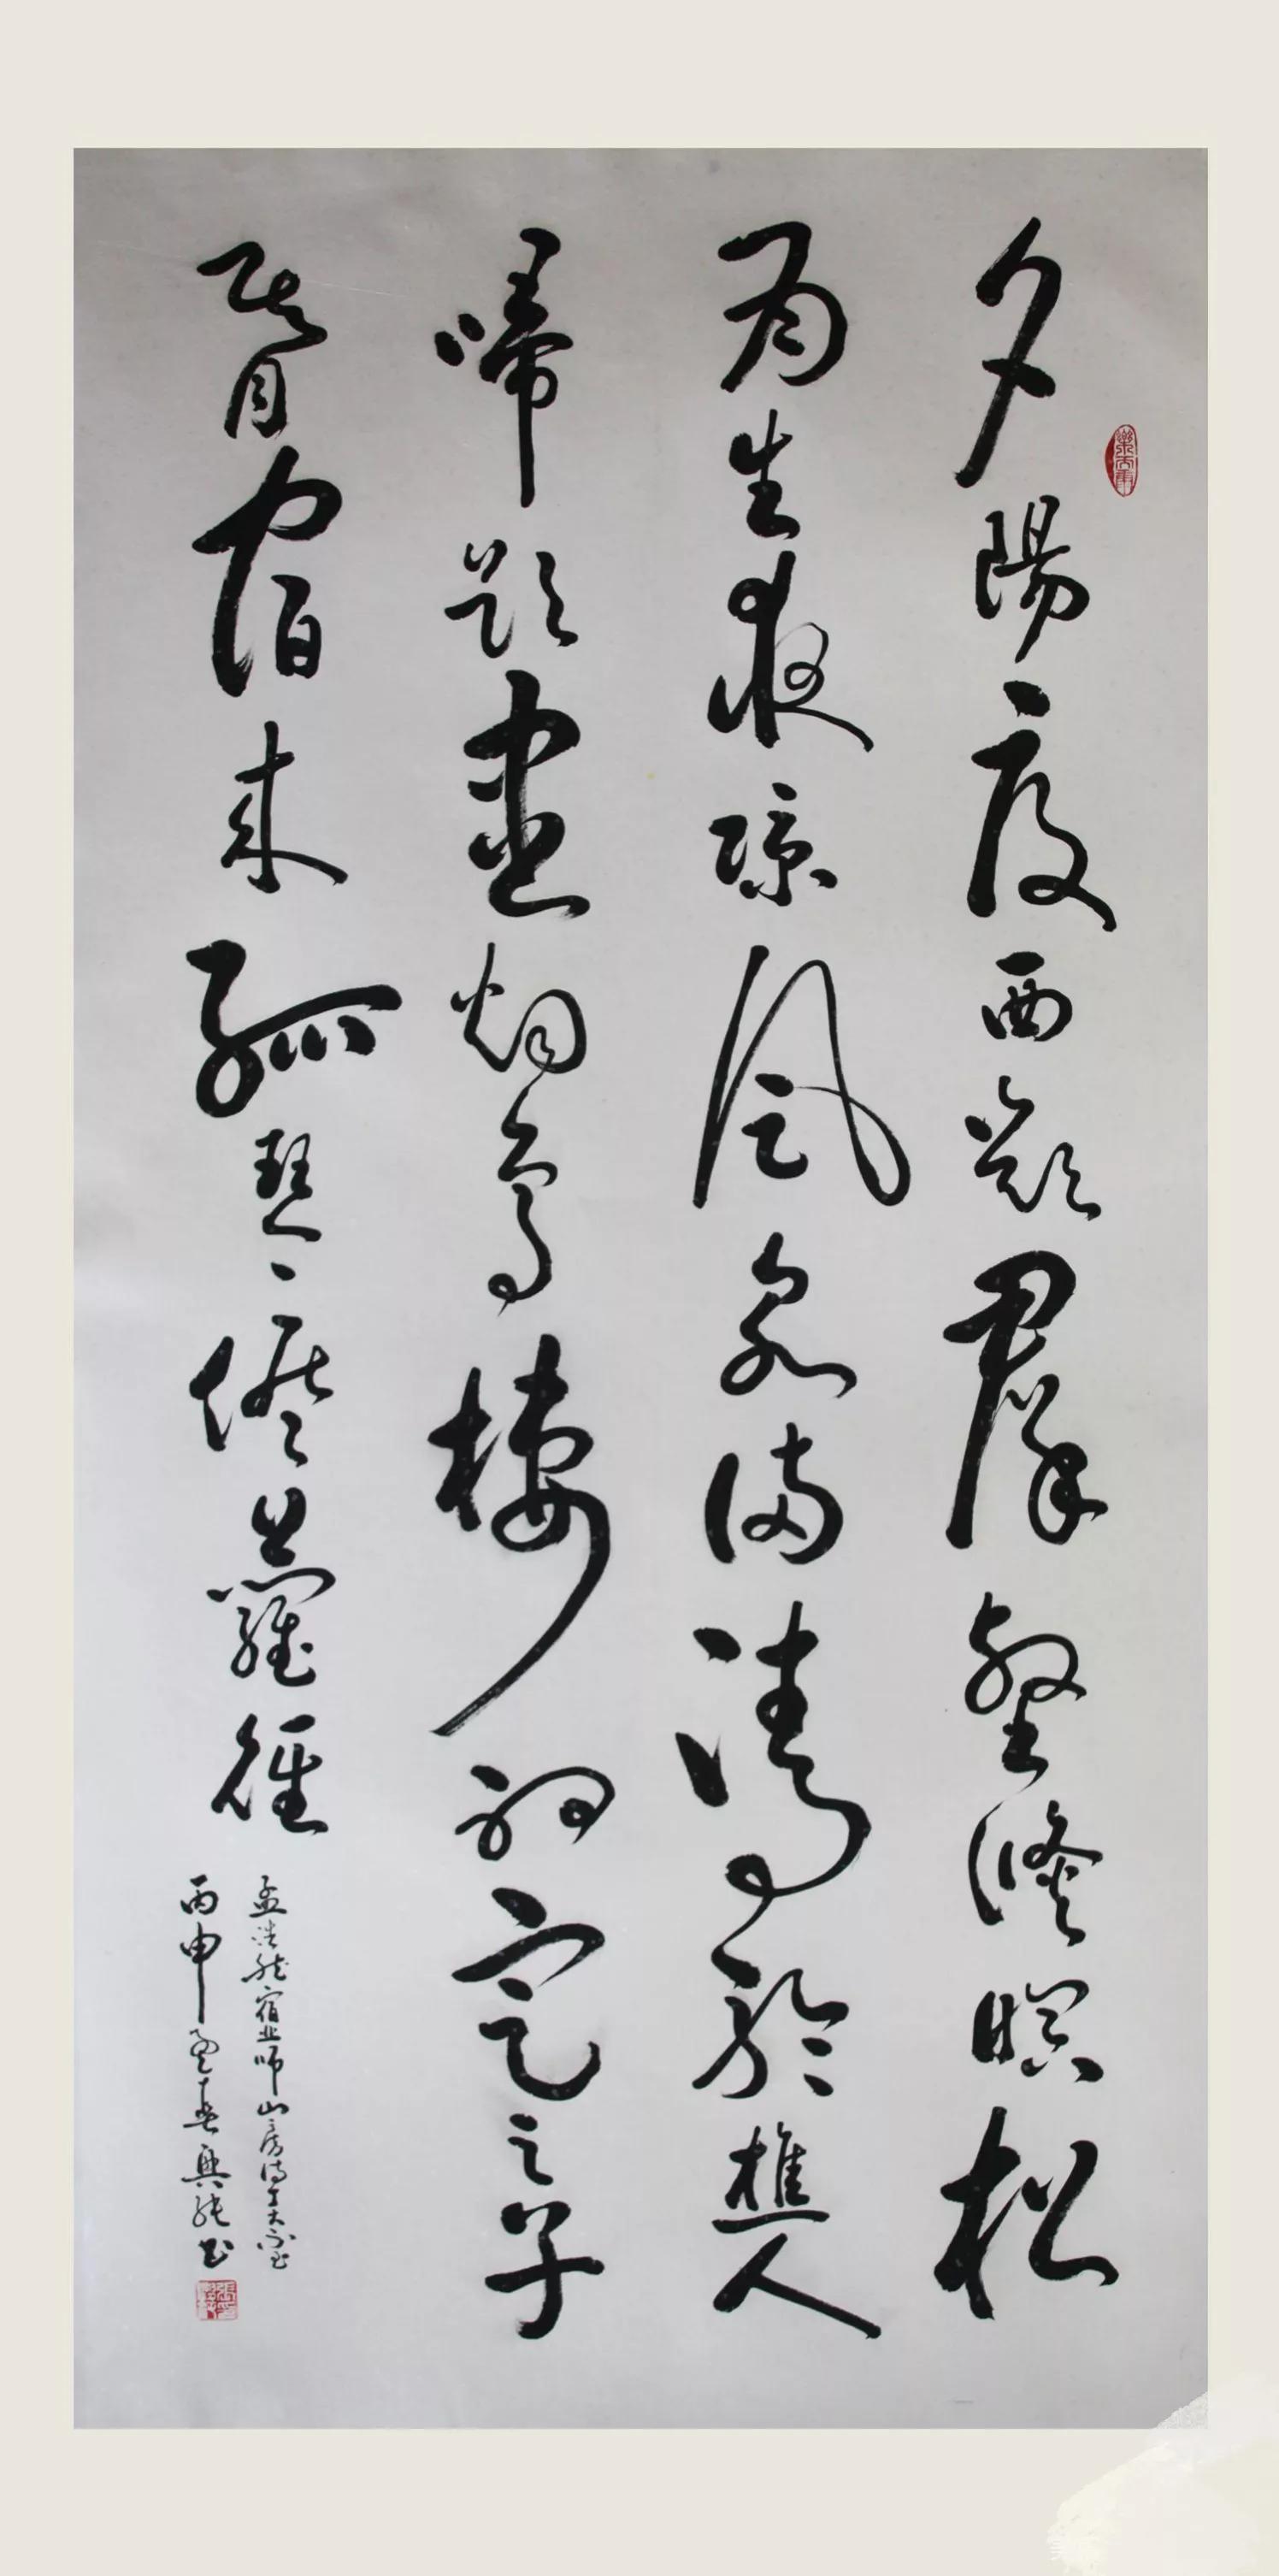 夕陽度西嶺群壑倏暝松
月生夜涼風泉满清聽樵人
歸欲盡烟鳥棲初定之子
期宿来孤琴候蘿徑
孟浩然宿业師山房待丁大不至
丙申孟春興书